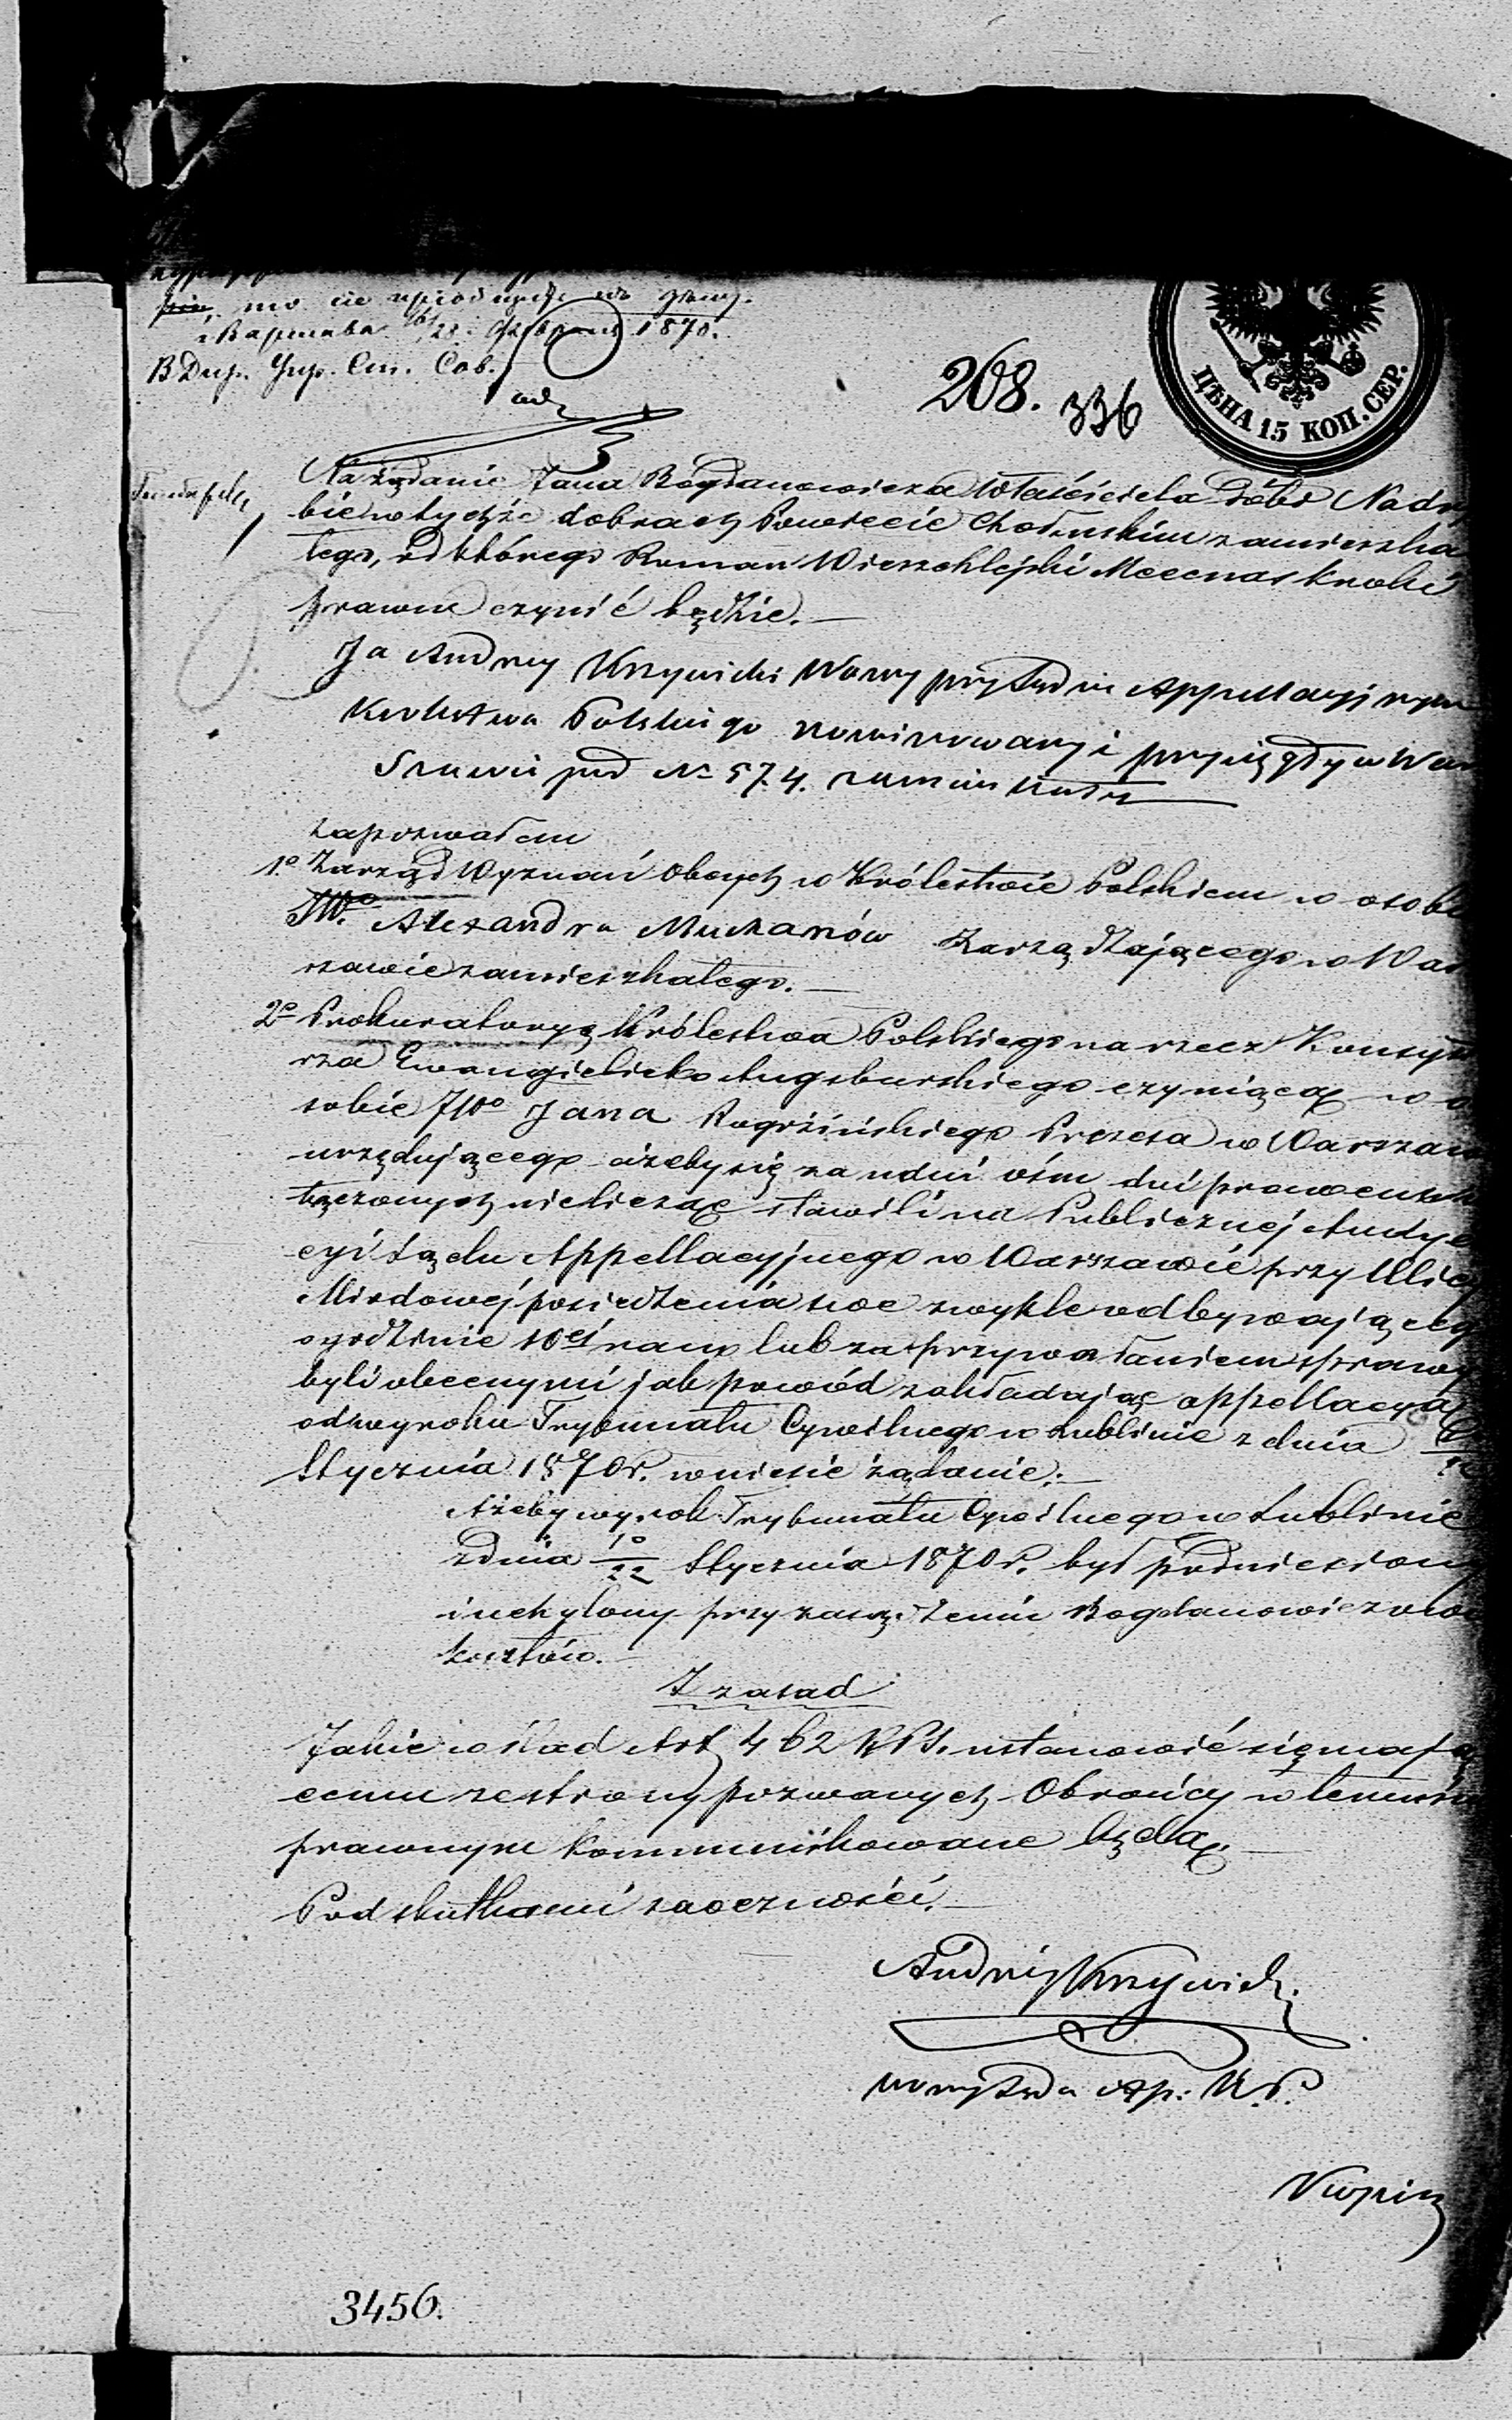 1870.
208. 336
ЦѢНА 15 КОП. СЕР.
Na żądanie Jana Bogdanowicza Właściciela Dóbr Nadry
bie w tychże dobrach Powiecie Chełmskim zamieszka
łego, od którego Roman Wierzchlejski Mecenas kroki
prawne czynić będzie.—
Ja Andrzej Krzywicki Woźny przy Sądzie Appellacyjnym
Królestwa Polskiego nominowany i przysięgły w War
szawie pod No 574. zamieszkały
zapozwałem
1o Zarząd Wyznań Obcych w Królestwie Polskiem w osobie
JWo Alexandra Muchanów Zarządzającego w War
szawie zamieszkałego.—
2o Prokuratoryą Królestwa Polskiego na rzecz Konsysto
rza Ewangielicko Augsburskiego czyniącą w o
sobie JWo Jana Prezesa w Warszawie
urzędującego ażeby się za udni ośm dni prawem
łączonych nielicząc stawili na Publicznej Audyen
cyi Sądu Appellacyjnego w Warszawie przy Ulicy
Miodowej posiedzenia swe zwykle odbywającego
o godzinie 10ej rano lub za przywołaniem sprawy
byli obecnymi jak powód zakładając appellacyą
od wyroku Trybunału Cywilnego w Lublinie z dnia
Stycznia 1870 r. wniesie żądanie:—
Ażeby wyrok Trybunału Cywilnego w Lublinie
z dnia 10/22 Stycznia 1870 r. był podniesiony
i uchylony przy zasądzeniu Bogdanowiczowi
kosztów.—
Z zasad
Jakie w ślad Art 462 K.P.S. ustanowić się mają
cemu ze strony pozwanych Obrońcy w terminie
prawnym kommunikowane będą.—
Pod skutkami zaoczności.—
Andrzej Krzywicki
Woźny Sądu Ap: K.P.
3456.